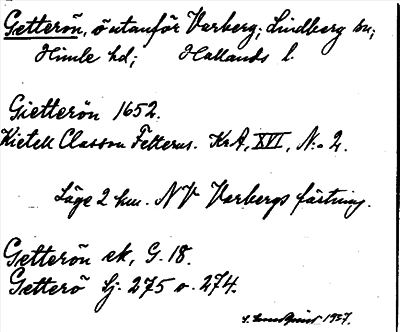 Getterön, ö utanför Varberg; Lindberg sn;
Himle hd; Hallands l.
Gietterön 1652.
Kietell Classon Felterus. Kr.A, XVI, N:o 2.
Läge 2 km. NV Varbergs fästning.
Getterön ek, G. 18.
Getterö Sj. 275 o. 274.
1927.